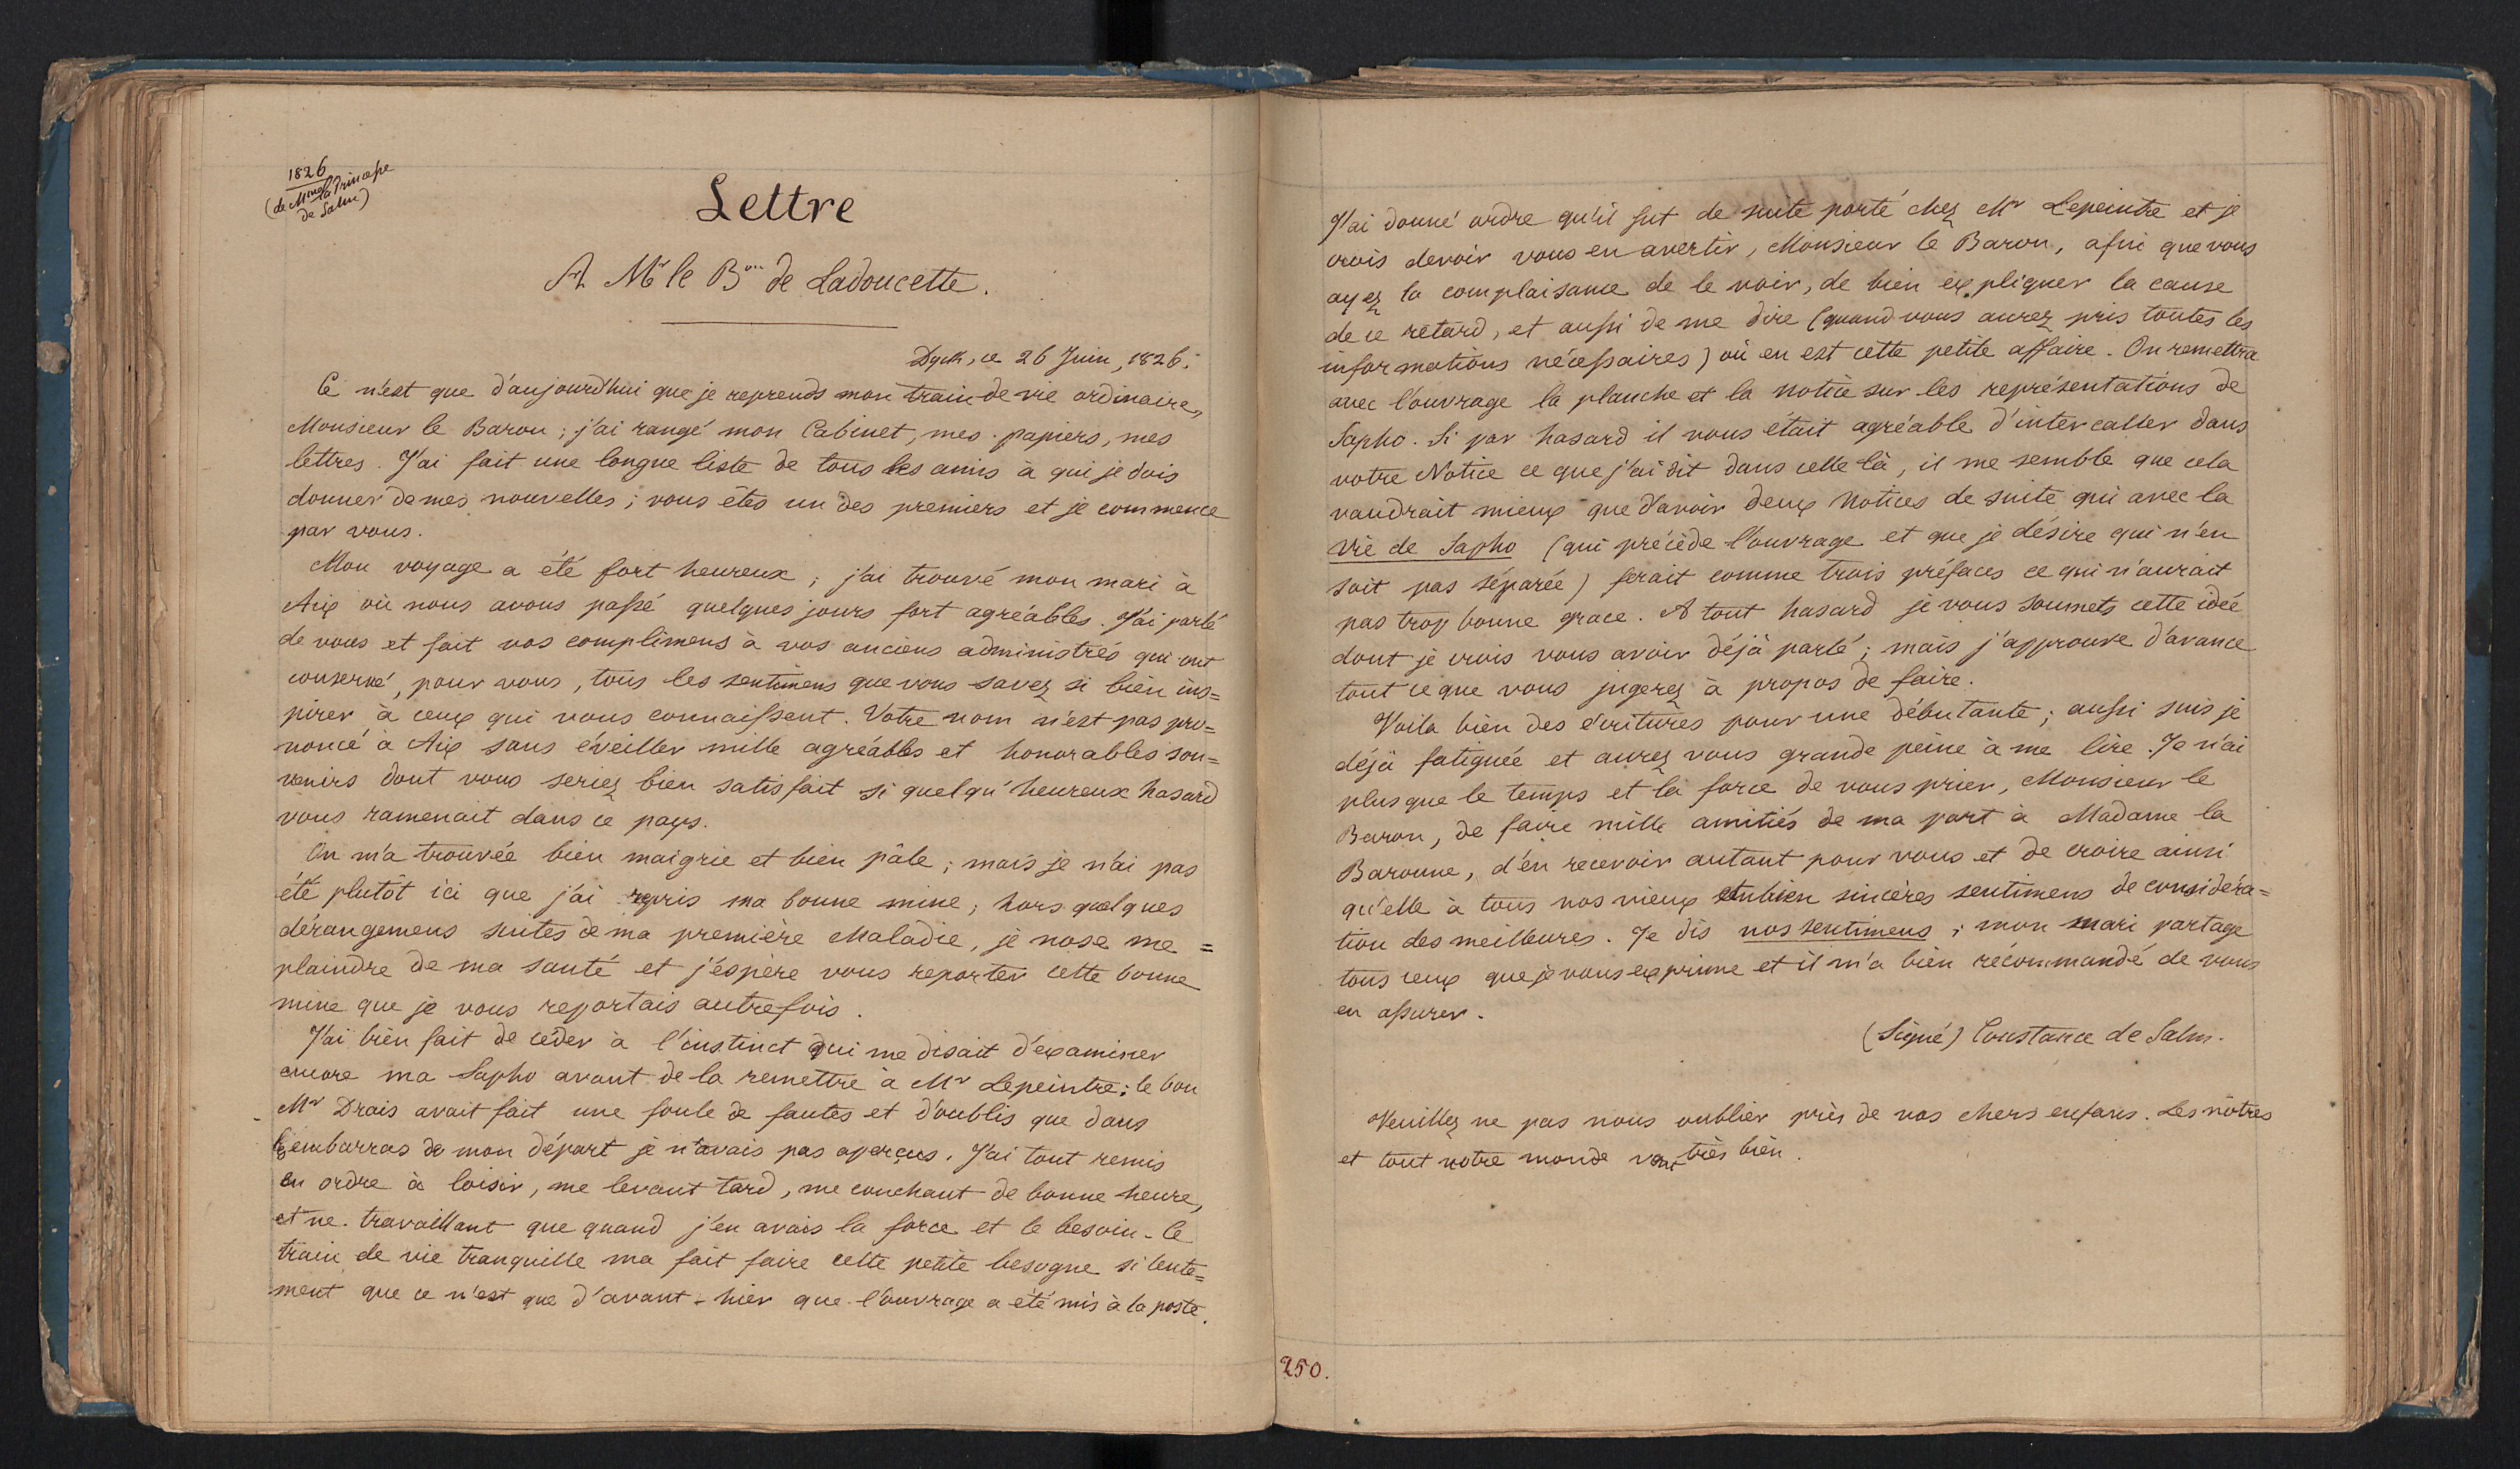 1826
(de Mme la Princesse
de Salm)
Lettre
A Mr le Bon de Ladoucette.
Dyck, ce 26 Juin, 1826.
Ce n'est que d'aujourd'hui que je reprends mon train de vie ordinaire,
Monsieur le Baron ; j'ai rangé mon Cabinet, mes papiers, mes
lettres. J'ai fait une longue liste de tous les amis à qui je dois
donner de mes nouvelles ; vous êtes un des premiers et je commence
par vous.
Mon voyage a été fort heureux ; j'ai trouvé mon mari à
Aix où nous avons passé quelques jours fort agréables. J'ai parlé
de vous et fait vos complimens à vos anciens administrés qui ont
conservé, pour vous, tous les sentimens que vous savez si bien ins=
pirer à ceux qui vous connaissent. Votre nom n'est pas pro=
noncé à Aix sans éveiller mille agréables et honorables sou=
venirs dont vous seriez bien satisfait si quelqu'heureux hasard
vous ramenait dans ce pays.
On m'a trouvée bien maigrie et bien pâle ; mais je n'ai pas
été plutôt ici que j'ai repris ma bonne mine ; hors quelques
dérangemens suites de ma première Maladie, je nose me =
plaindre de ma santé et j'éspère vous reporter cette bonne
mine que je vous reportais autrefois.
J'ai bien fait de céder à l'instinct qui me disait d'examiner
encore ma Sapho avant de la remettre à Mr Lepeintre ; le bon
Mr Drais avait fait une foule de fautes et d'oublis que dans
l'embarras de mon départ je n'avais pas aperçus. J'ai tout remis
en ordre à loisir, me levant tard, me couchant de bonne heure,
et ne travaillant que quand j'en avais la force et le besoin. Ce
train de vie tranquille ma fait faire cette petite besogne si lente=
ment que ce n'est que d'avant-hier que l'ouvrage a été mis à la poste.
J'ai donné ordre qu'il fut de suite porté chez Mr Lepeintre et je
crois devoir vous en avertir, Monsieur le Baron, afin que vous
ayez la complaisance de le voir, de bien expliquer la cause
de ce retard, et aussi de me dire (quand vous aurez pris toutes les
informations nécessaires) où en est cette petite affaire. On remettra
avec l'ouvrage la planche et la notice sur les représentations de
Sapho. Si par hasard il vous était agréable d'intercaller dans
votre Notice ce que j'ai dit dans celle là, il me semble que cela
vaudrait mieux que d'avoir deux Notices de suite qui avec la
vie de Sapho (qui précède l'ouvrage et que je désire qui n'en
soit pas séparée) ferait comme trois préfaces ce qui n'aurait
pas trop bonne grace. A tout hasard je vous soumets cette idée
dont je crois vous avoir déjà parlé ; mais j'approuve d'avance
tout ce que vous jugerez à propos de faire.
Voila bien des écritures pour une débutante ; aussi suis je
déjà fatiguée et aurez vous grande peine à me lire. Je n'ai
plus que le temps et la force de vous prier, Monsieur le
Baron, de faire mille amitiés de ma part à Madame la
Baronne, d'en recevoir autant pour vous et de croire ainsi
qu'elle à tous nos vieux et bien sincères sentimens de considéra=
tion des meilleures. Je dis nos sentimens ; mon mari partage
tous ceux que je vous exprime et il m'a bien récommandé de vous
en assurer.
(Signé) Constance de Salm.
Veuillez ne pas nous oublier près de vos chers enfans. Les nôtres
et tout notre monde vont très bien.
250.